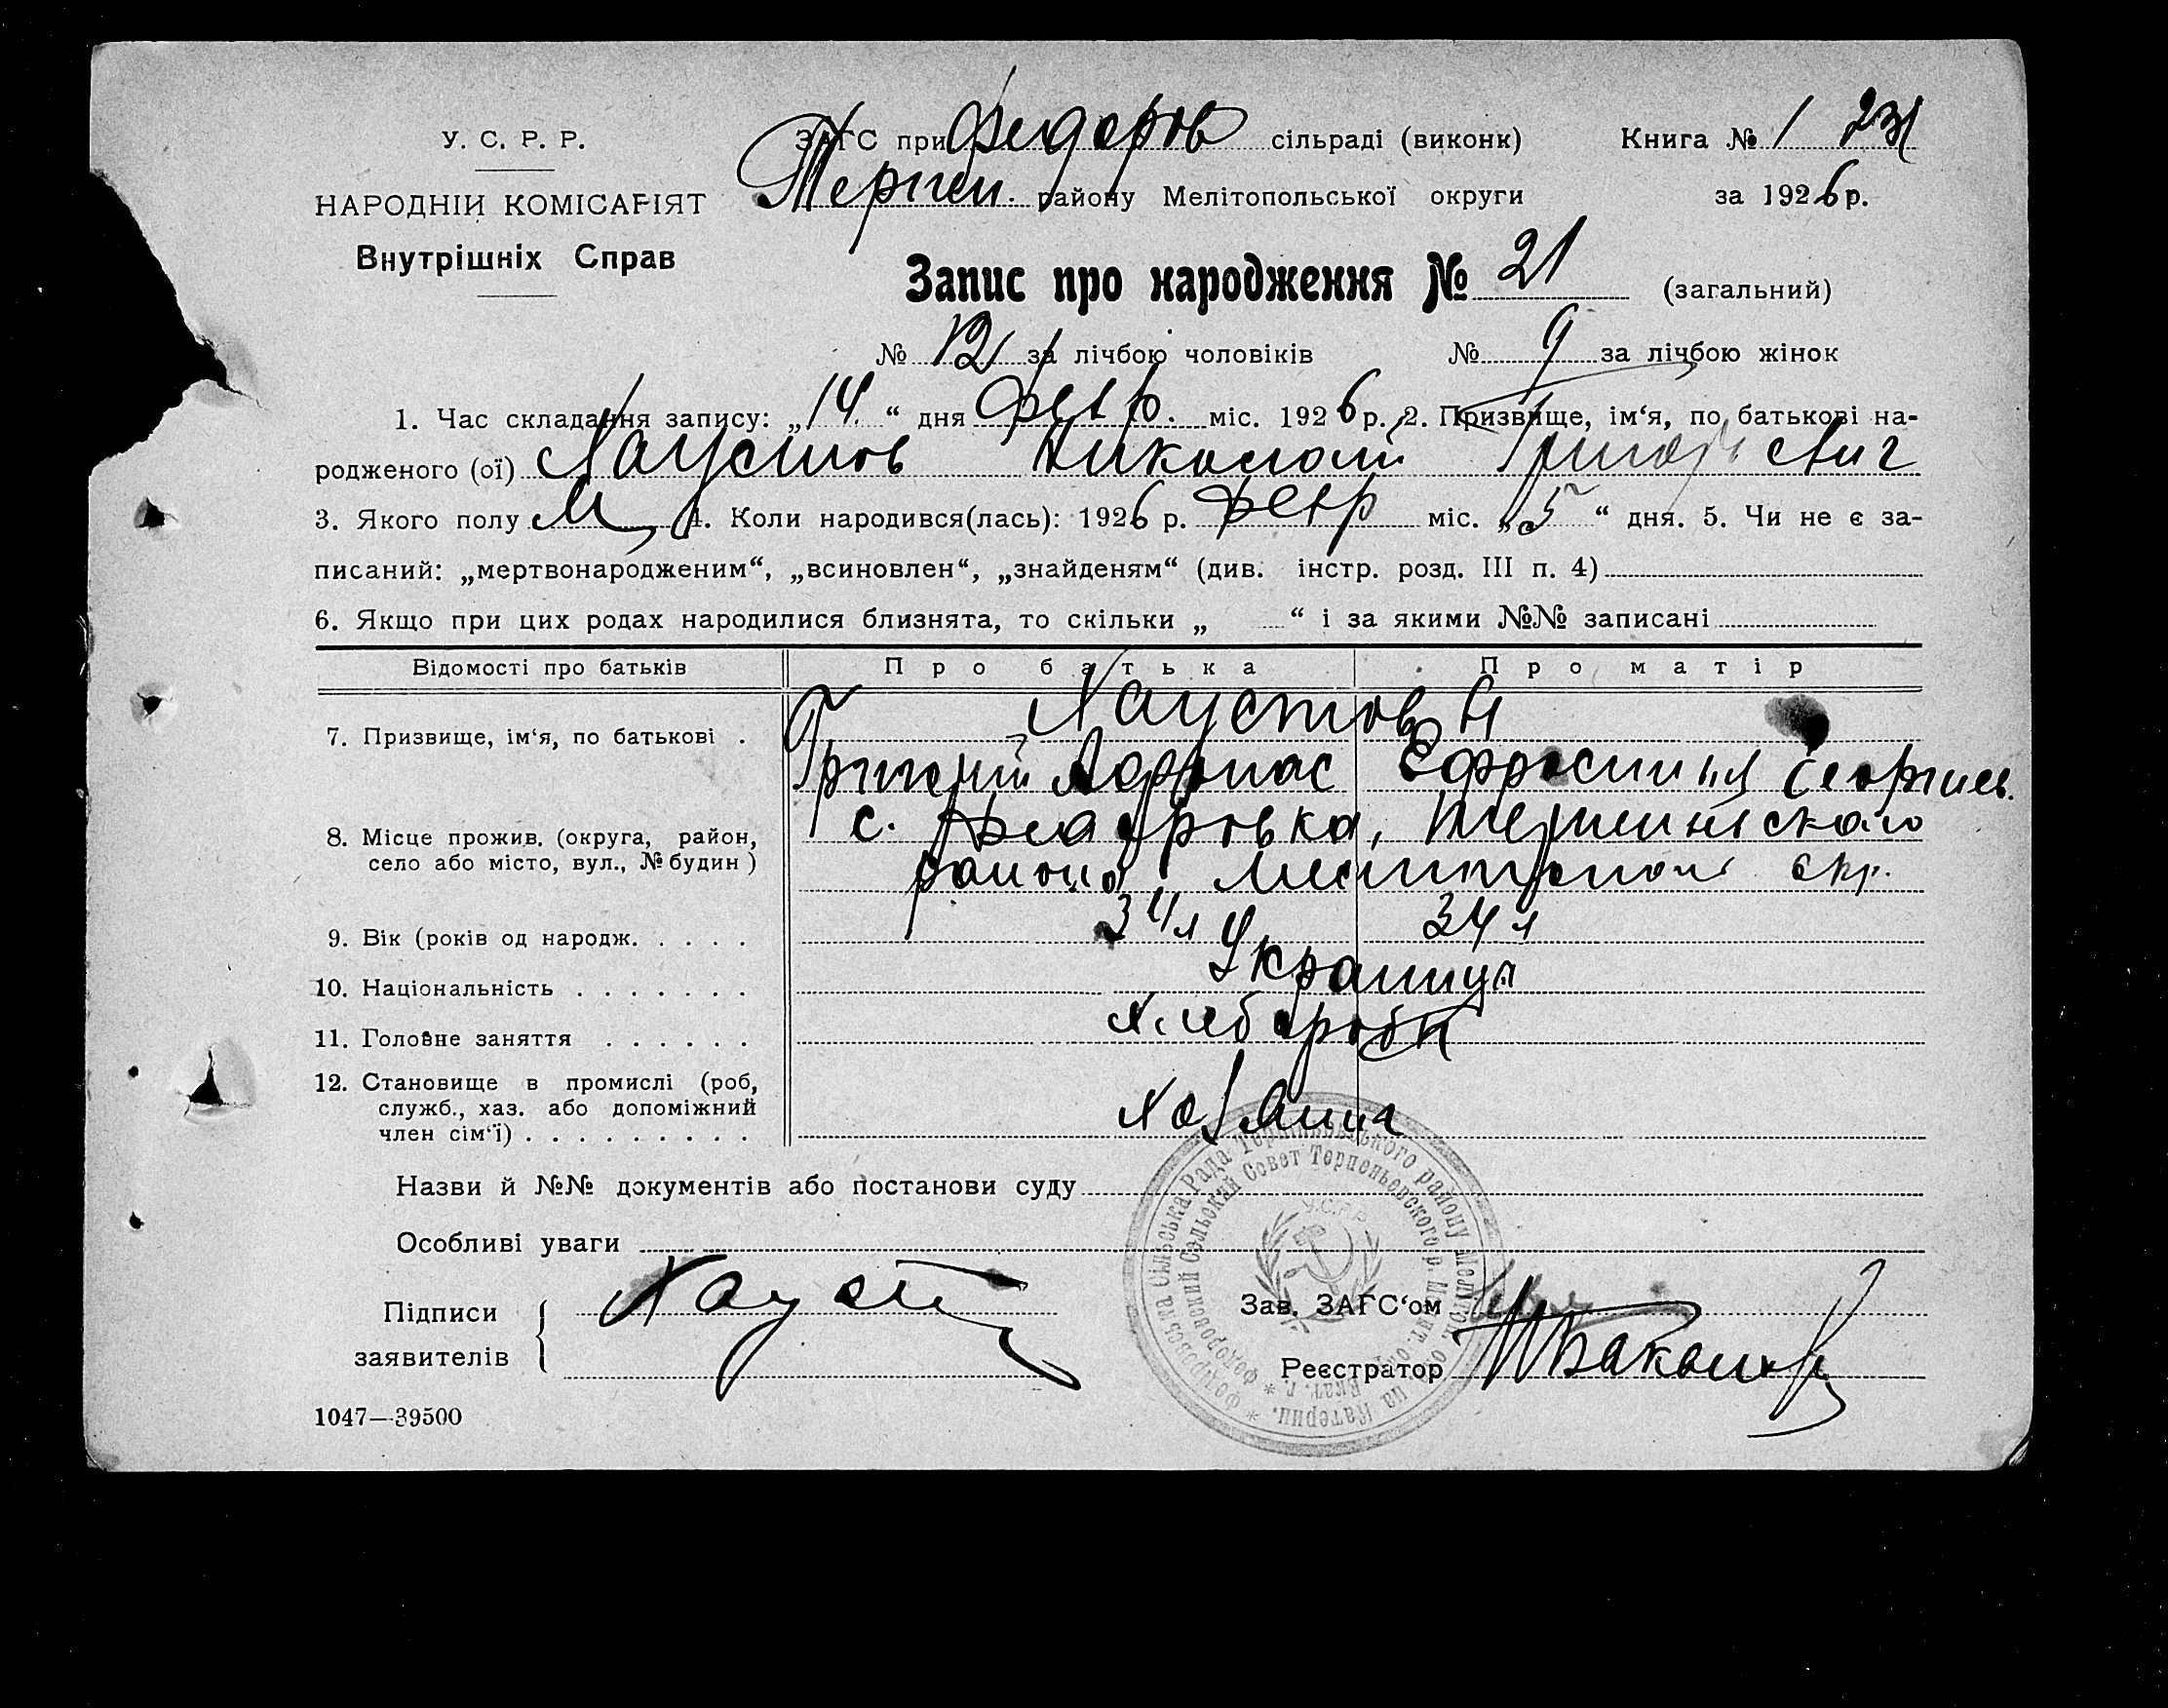 У. С. Р. Р.
НАРОДНІЙ КОМІСАРІЯТ
Внутрішніх Справ
ЗАГС при Федоров сільраді (виконк) Книга № 1 231
Терпен. району Мелітопольської округи за 1926 р.
Запис про народження № 21 (загальний)
№ 12 за лічбою чоловіків № 9 за лічбою жінок
1. Час складання запису: „14“ дня февр. міс. 1926 р. 2. Призвище, ім‘я, по батькові на-
родженого (ої) Хаустов Николай Григорьевич
3. Якого полу М 4. Коли народився(лась): 1926 р. февр міс. „5“ дня. 5. Чи не є за-
писаний: „мертвонародженим“, „всиновлен“, „знайденям“ (див. інстр. розд. III п. 4)
6. Якщо при цих родах народилися близнята, то скільки „ “ і за якими №№ записані
Відомості про батьків Про батька Про матір
Хаустовы
7. Призвище, ім‘я, по батькові .
Григорий Ефросиния Георгиев.
8. Місце прожив. (округа, район, с. Федоровка, Терпеньевского
село або місто, вул., № будин) района Мелитополь окр.
9. Вік (років од народж. . . . . 34 л 34 л
10. Національність . . . . . . . Украинцы
11. Головне заняття . . . . . . Хлеборобы
12. Становище в промислі (роб,
служб., хаз. або допоміжний
член сім‘ї) . . . . . . . . . Хозяина
Назви й №№ документів або постанови суду
Особливі уваги
Підписи Хауст
заявителів
Зав. ЗАГС‘ом
Реєстратор
1047—39500
Федоровська Сільська Рада Терпіньївського району Мелітоп. округа на Катерин.
Федоровский Сельский Совет Терпеньевского р. Мелит. окр. Екат. г.
У.С.Р.Р.